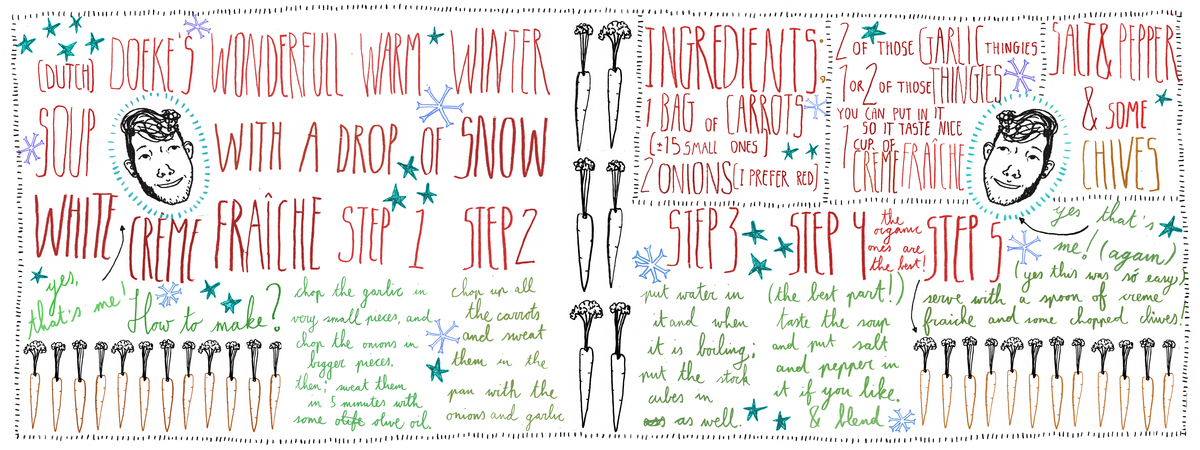 (DUTCH) DOEKE'S WONDERFULL WARM WINTER
SOUP WITH A DROP OF SNOW
WHITE CRÈME FRAÎCHE
yes,
that's me!
How to make?
STEP 1
chop the garlic in
very, small pieces, and
chop the onions in
bigger pieces.
then; sweat them
in 5 minutes with
some olive oil.
STEP 2
chop up all
the carrots
and sweat
them in the
pan with the
onions and garlic
INGREDIENTS:
1 BAG OF CARROTS
(±15 SMALL ONES)
2 ONIONS (I PREFER RED)
2 OF THOSE GARLIC THINGIES
1 OR 2 OF THOSE THINGIES
YOU CAN PUT IN IT
SO IT TASTE NICE
1 CUP OF CRÈME FRAÎCHE
SALT & PEPPER
& SOME
CHIVES
STEP 3
put water in
it and when
it is boiling;
put the stock
cubes in
as well.
STEP 4
(the best part!)
taste the soup
and put salt
and pepper in
it if you like.
& blend
the
organic
ones are
the best!
STEP 5
yes that's
me! (again)
(yes this was só easy)
serve with a spoon of creme
fraiche and some chopped chives!